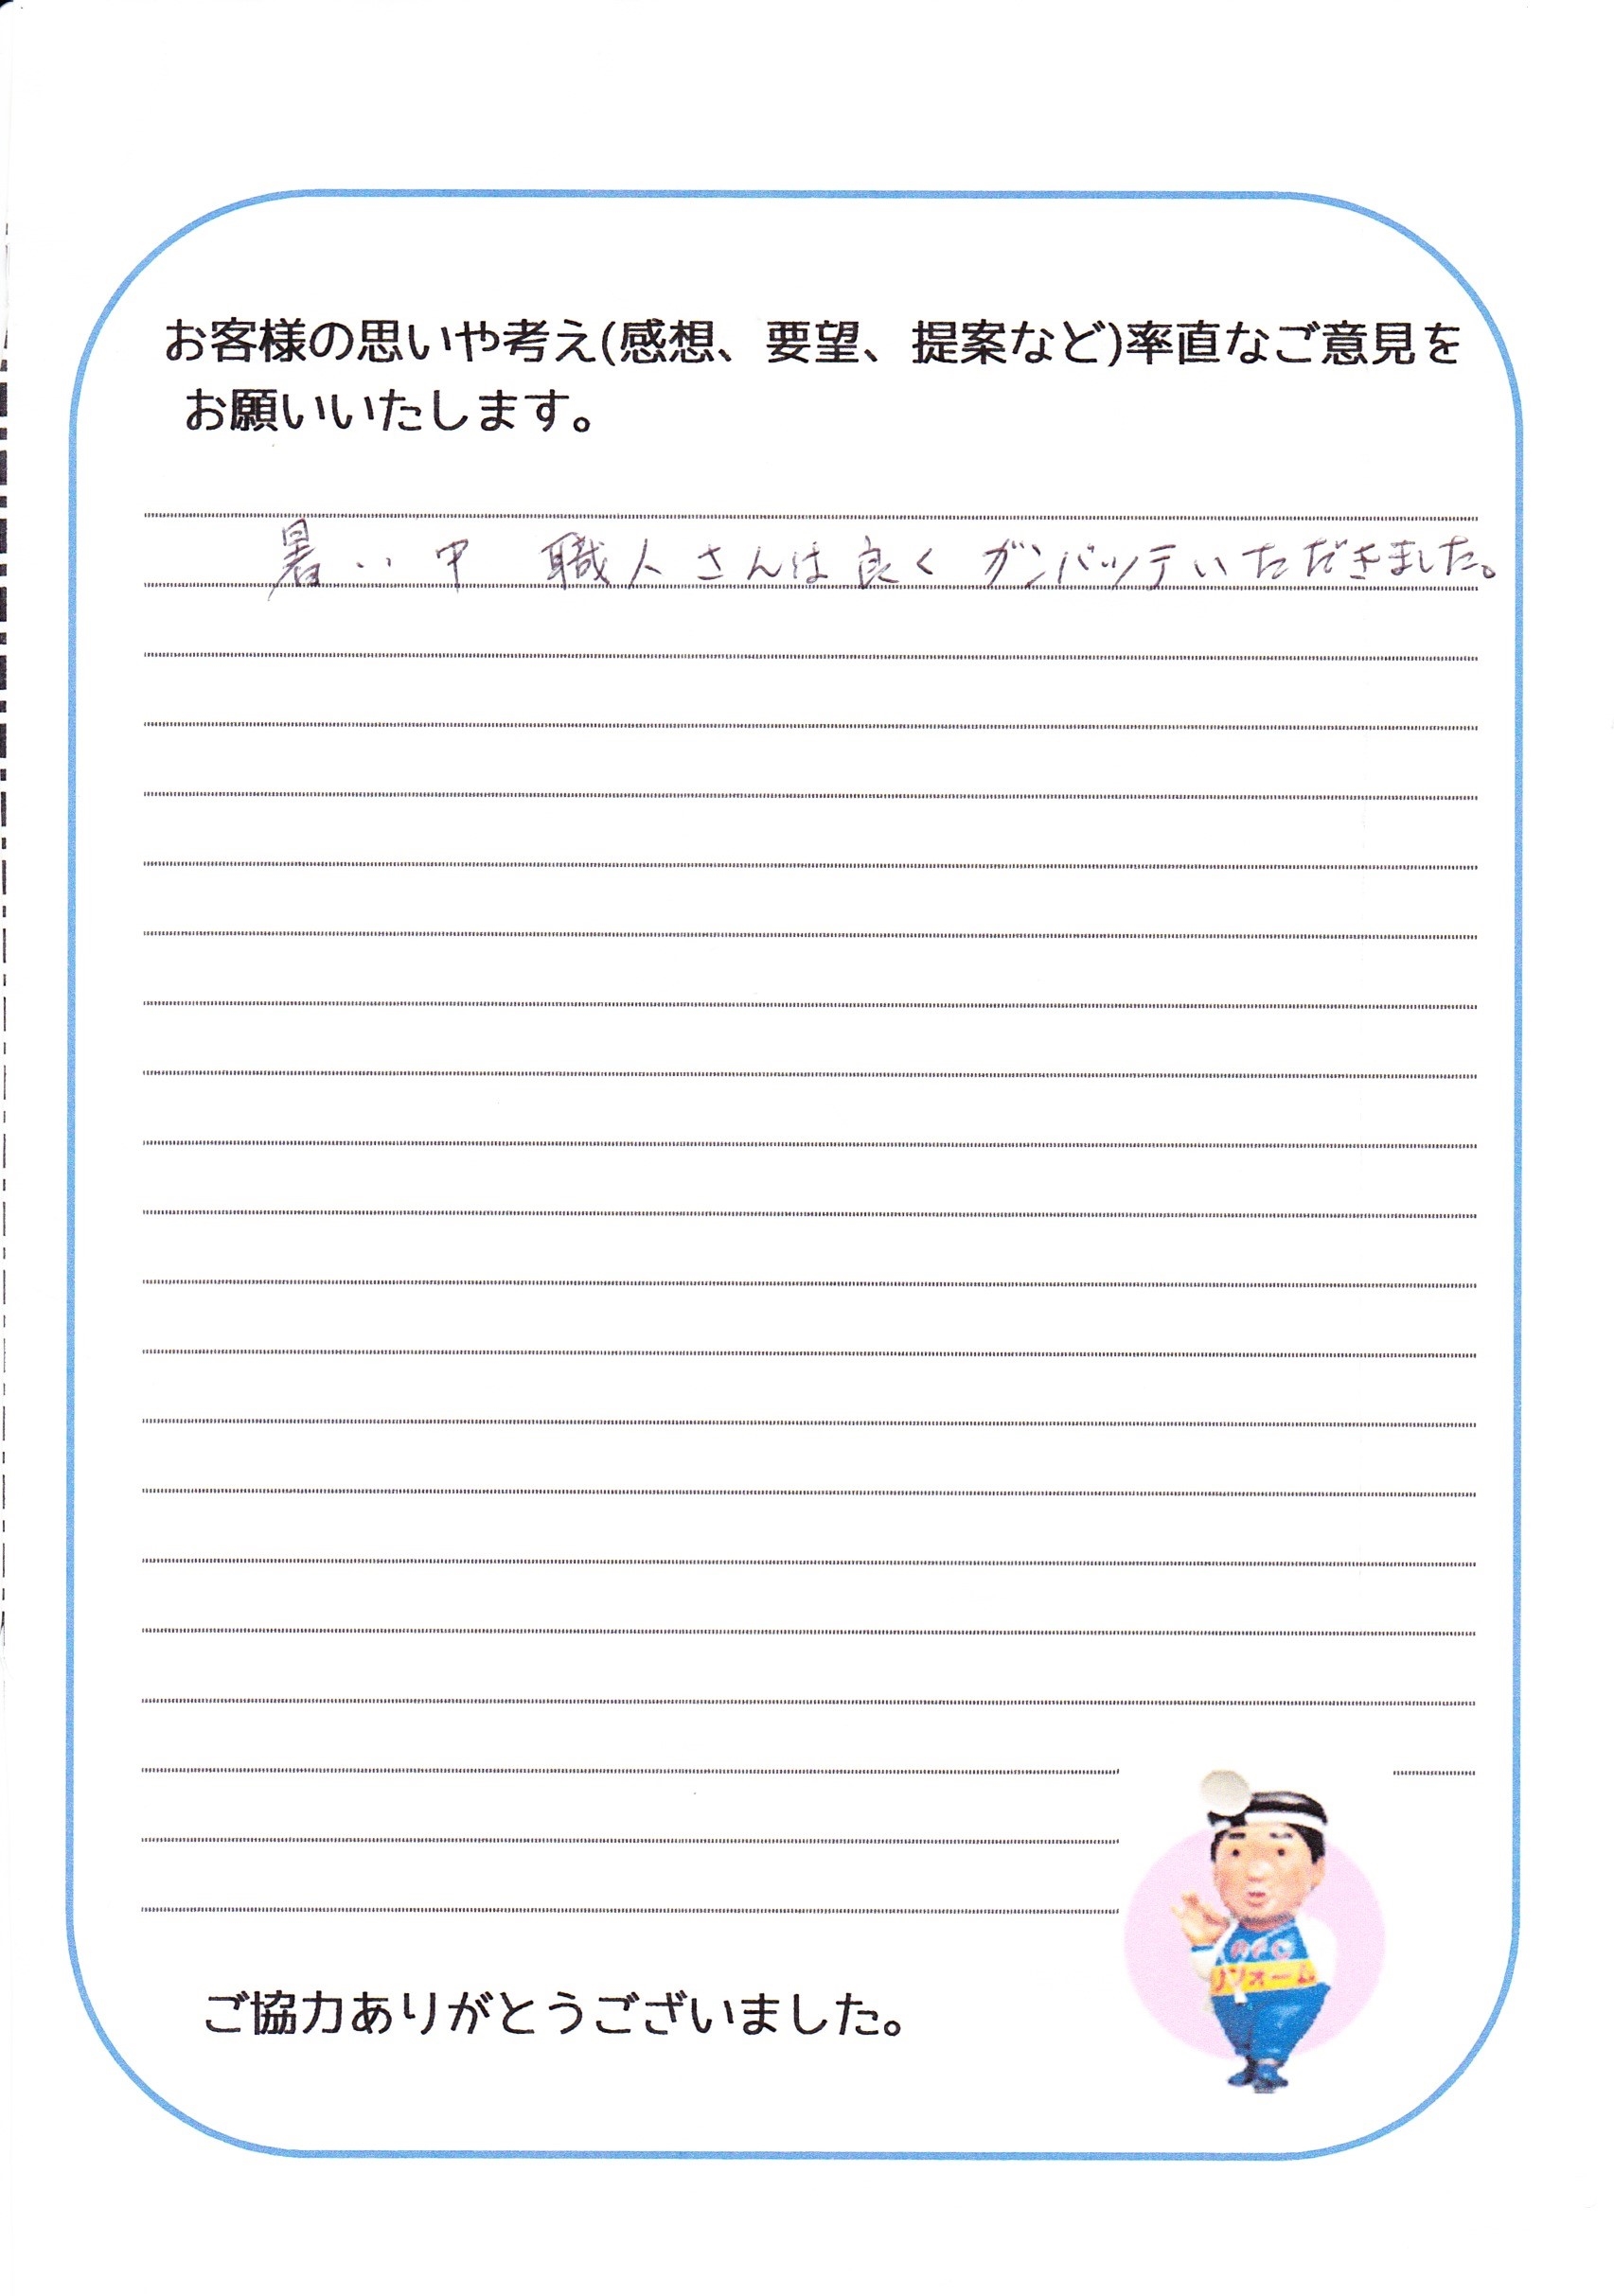 お客様の思いや考え(感想、要望、提案など)率直なご意見を
お願いいたします。
暑い中 職人さんは良く ガンバッテいただきました。
リフォーム
ご協力ありがとうございました。